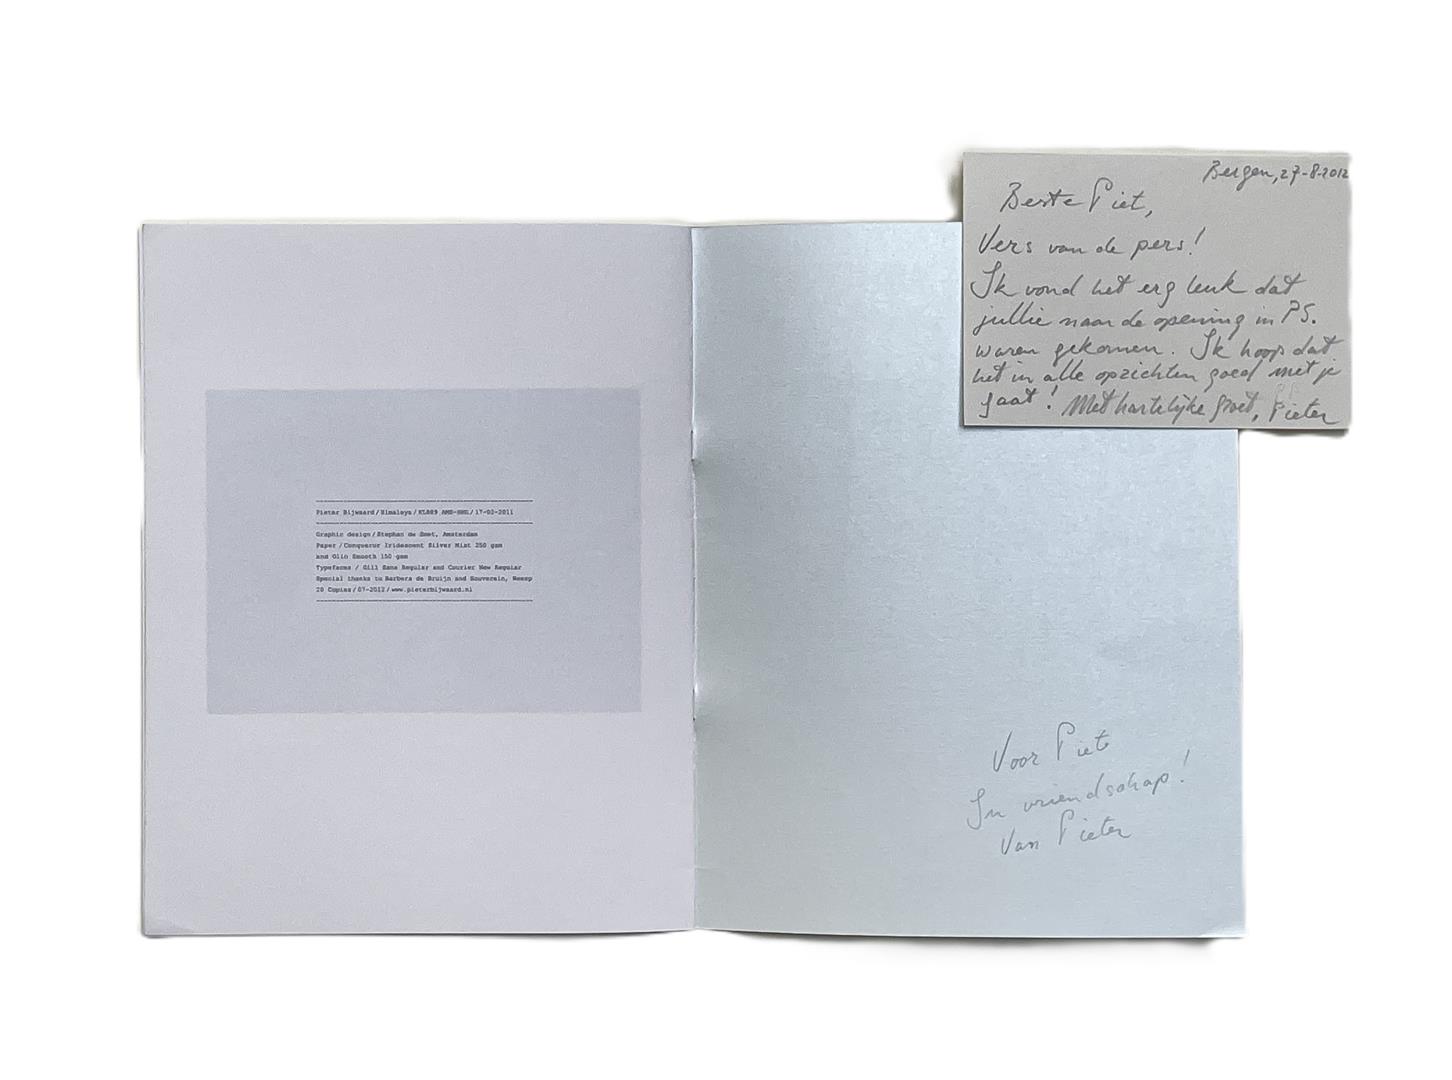 Pieter Bijwaard/Himalaya/KL889 AMS-HKG/17-03-2011
Graphic design/Stephan de Smet, Amsterdam
Paper/Conqueror Iridescent Silver Mist 250 gsm
and Olin Smooth 150 gsm
Typefaces / Gill Sans Regular and Courier New Regular
Special thanks to Barbera de Bruijn and Souverein, Weesp
20 Copies/07-2012/www.pieterbijwaard.nl
Bergen, 27-8-2012
Beste Piet,
Vers van de pers!
Ik vond het erg leuk dat
jullie naar de opening in PS.
waren gekomen. Ik hoop dat
het in alle opzichten goed met je
gaat! Met hartelijke groet, Pieter
Voor Piet
In vriendschap!
Van Pieter